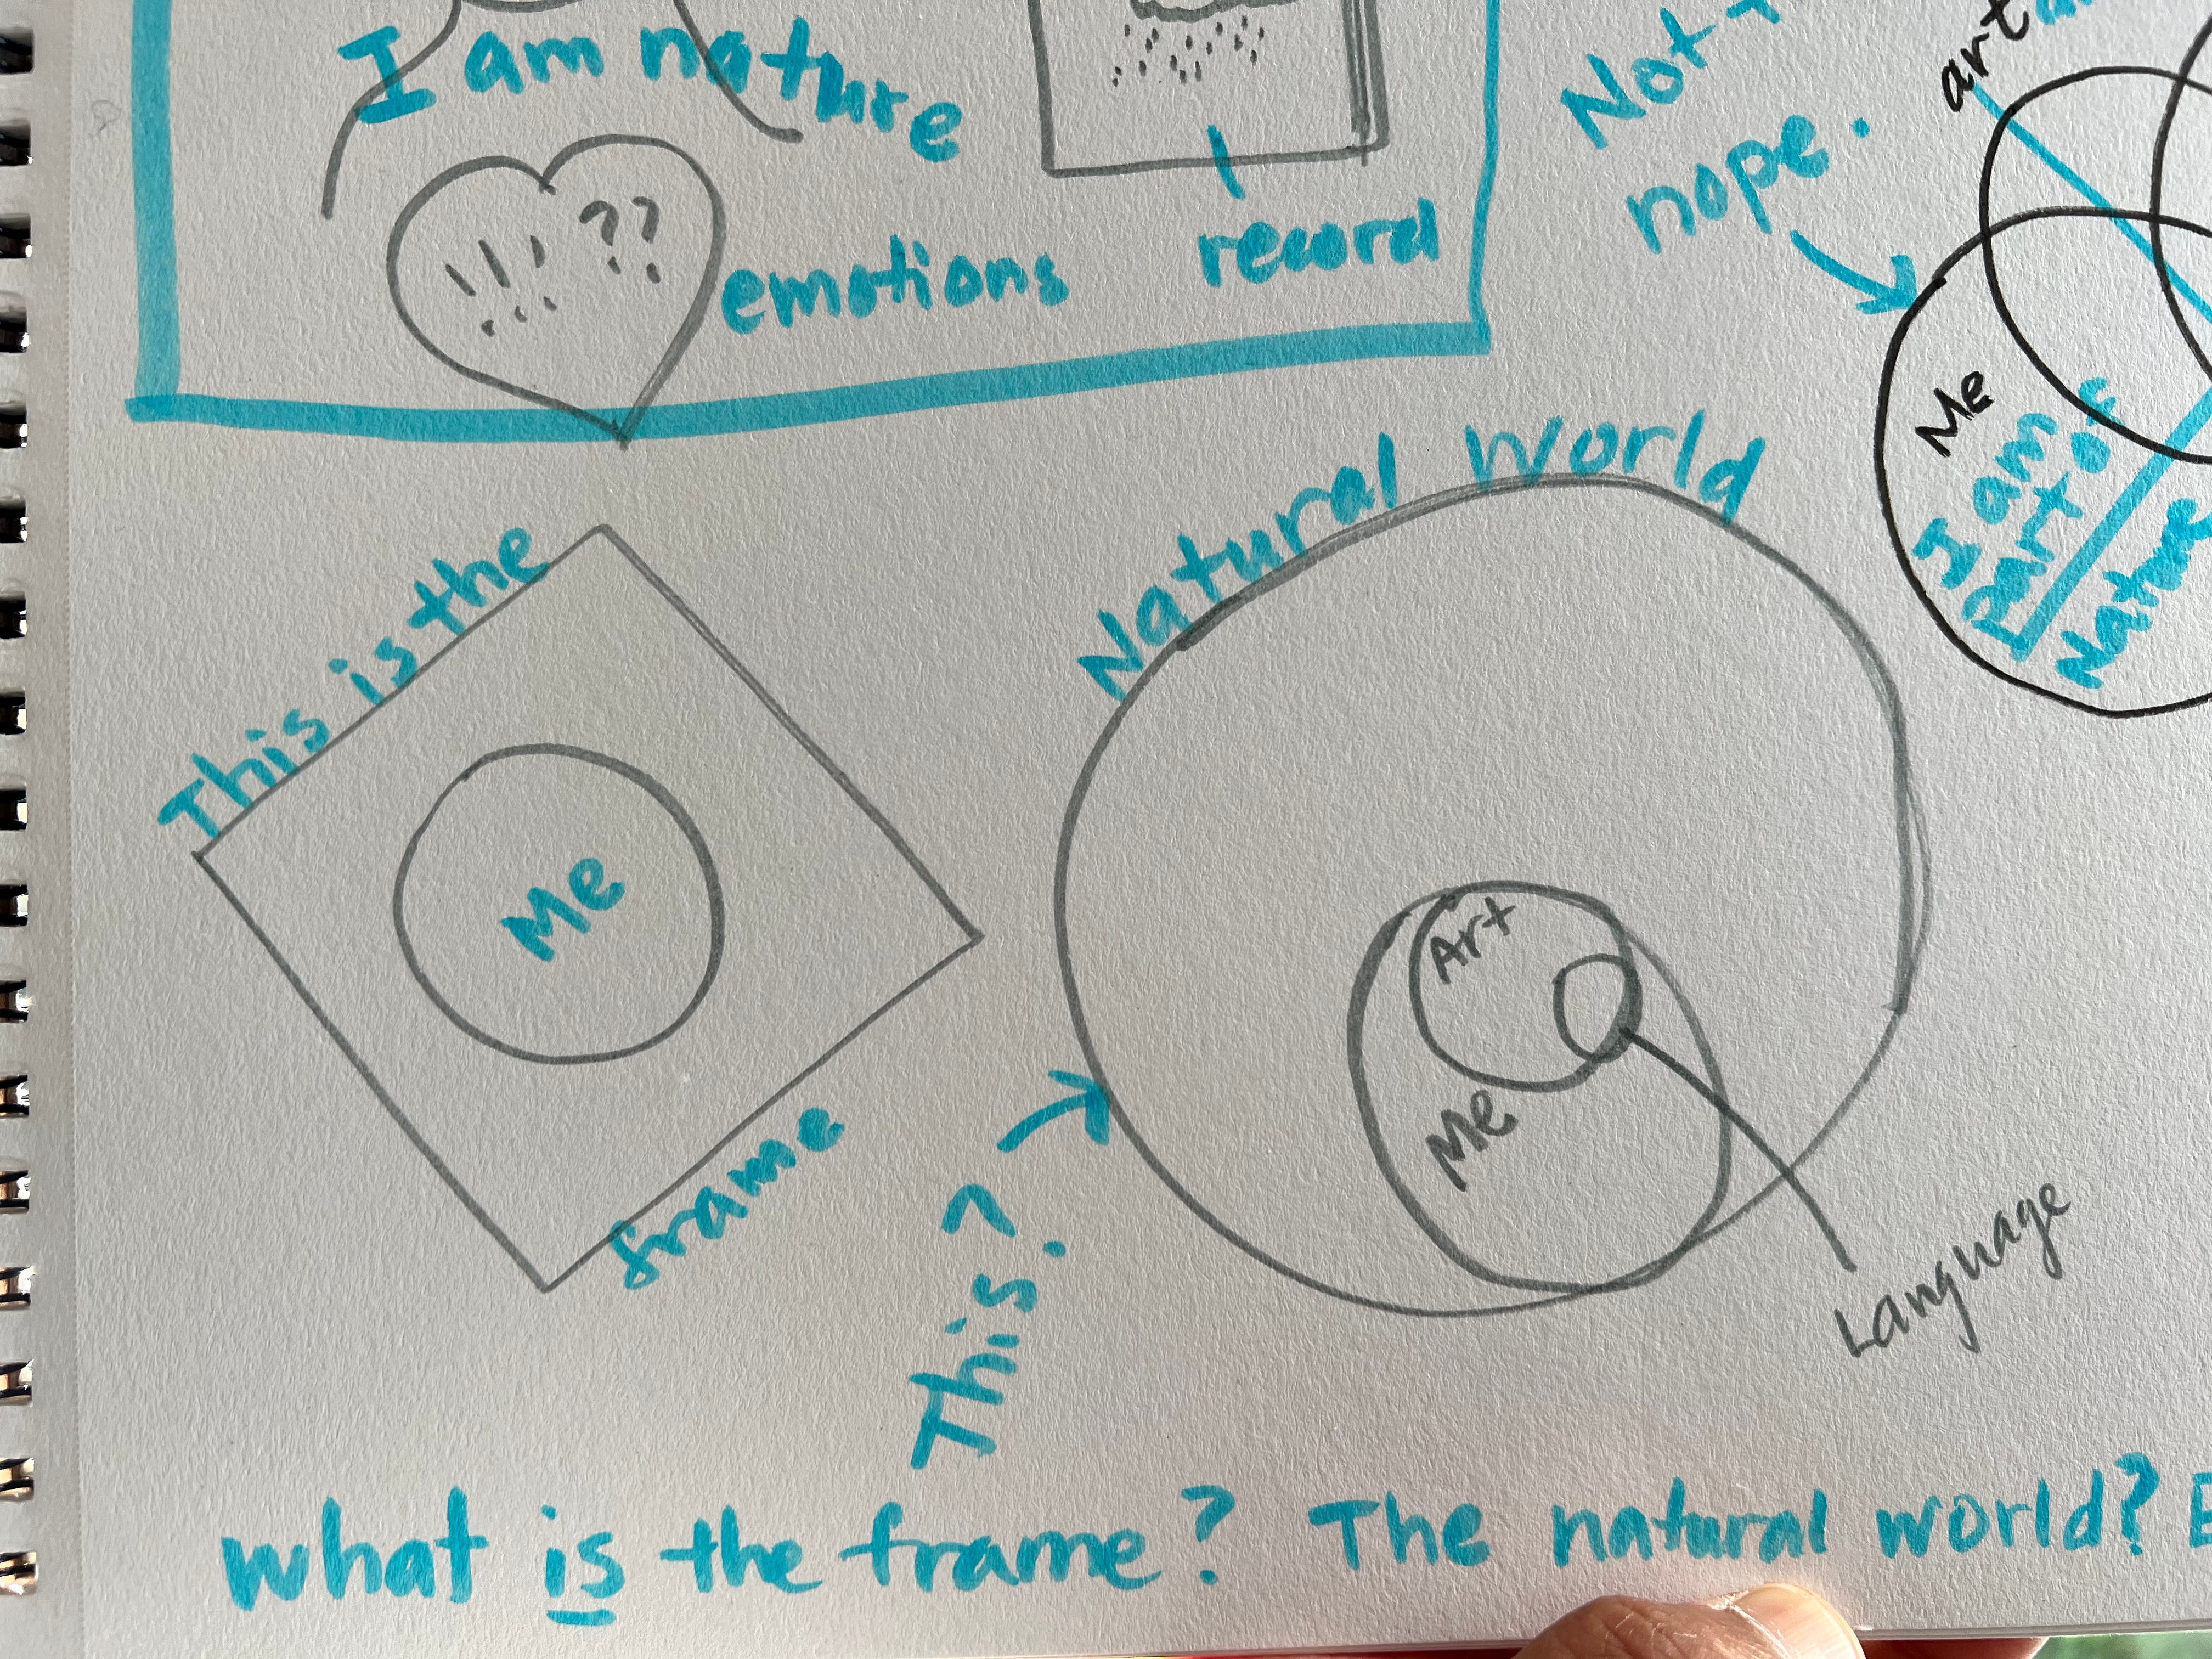 I am nature
!!! ??
emotions
record
Not
nope.
art
Me
I am
part of
Nature
This is the
Me
frame
Natural World
Art
Me
Language
This?
What is the frame? The natural world?